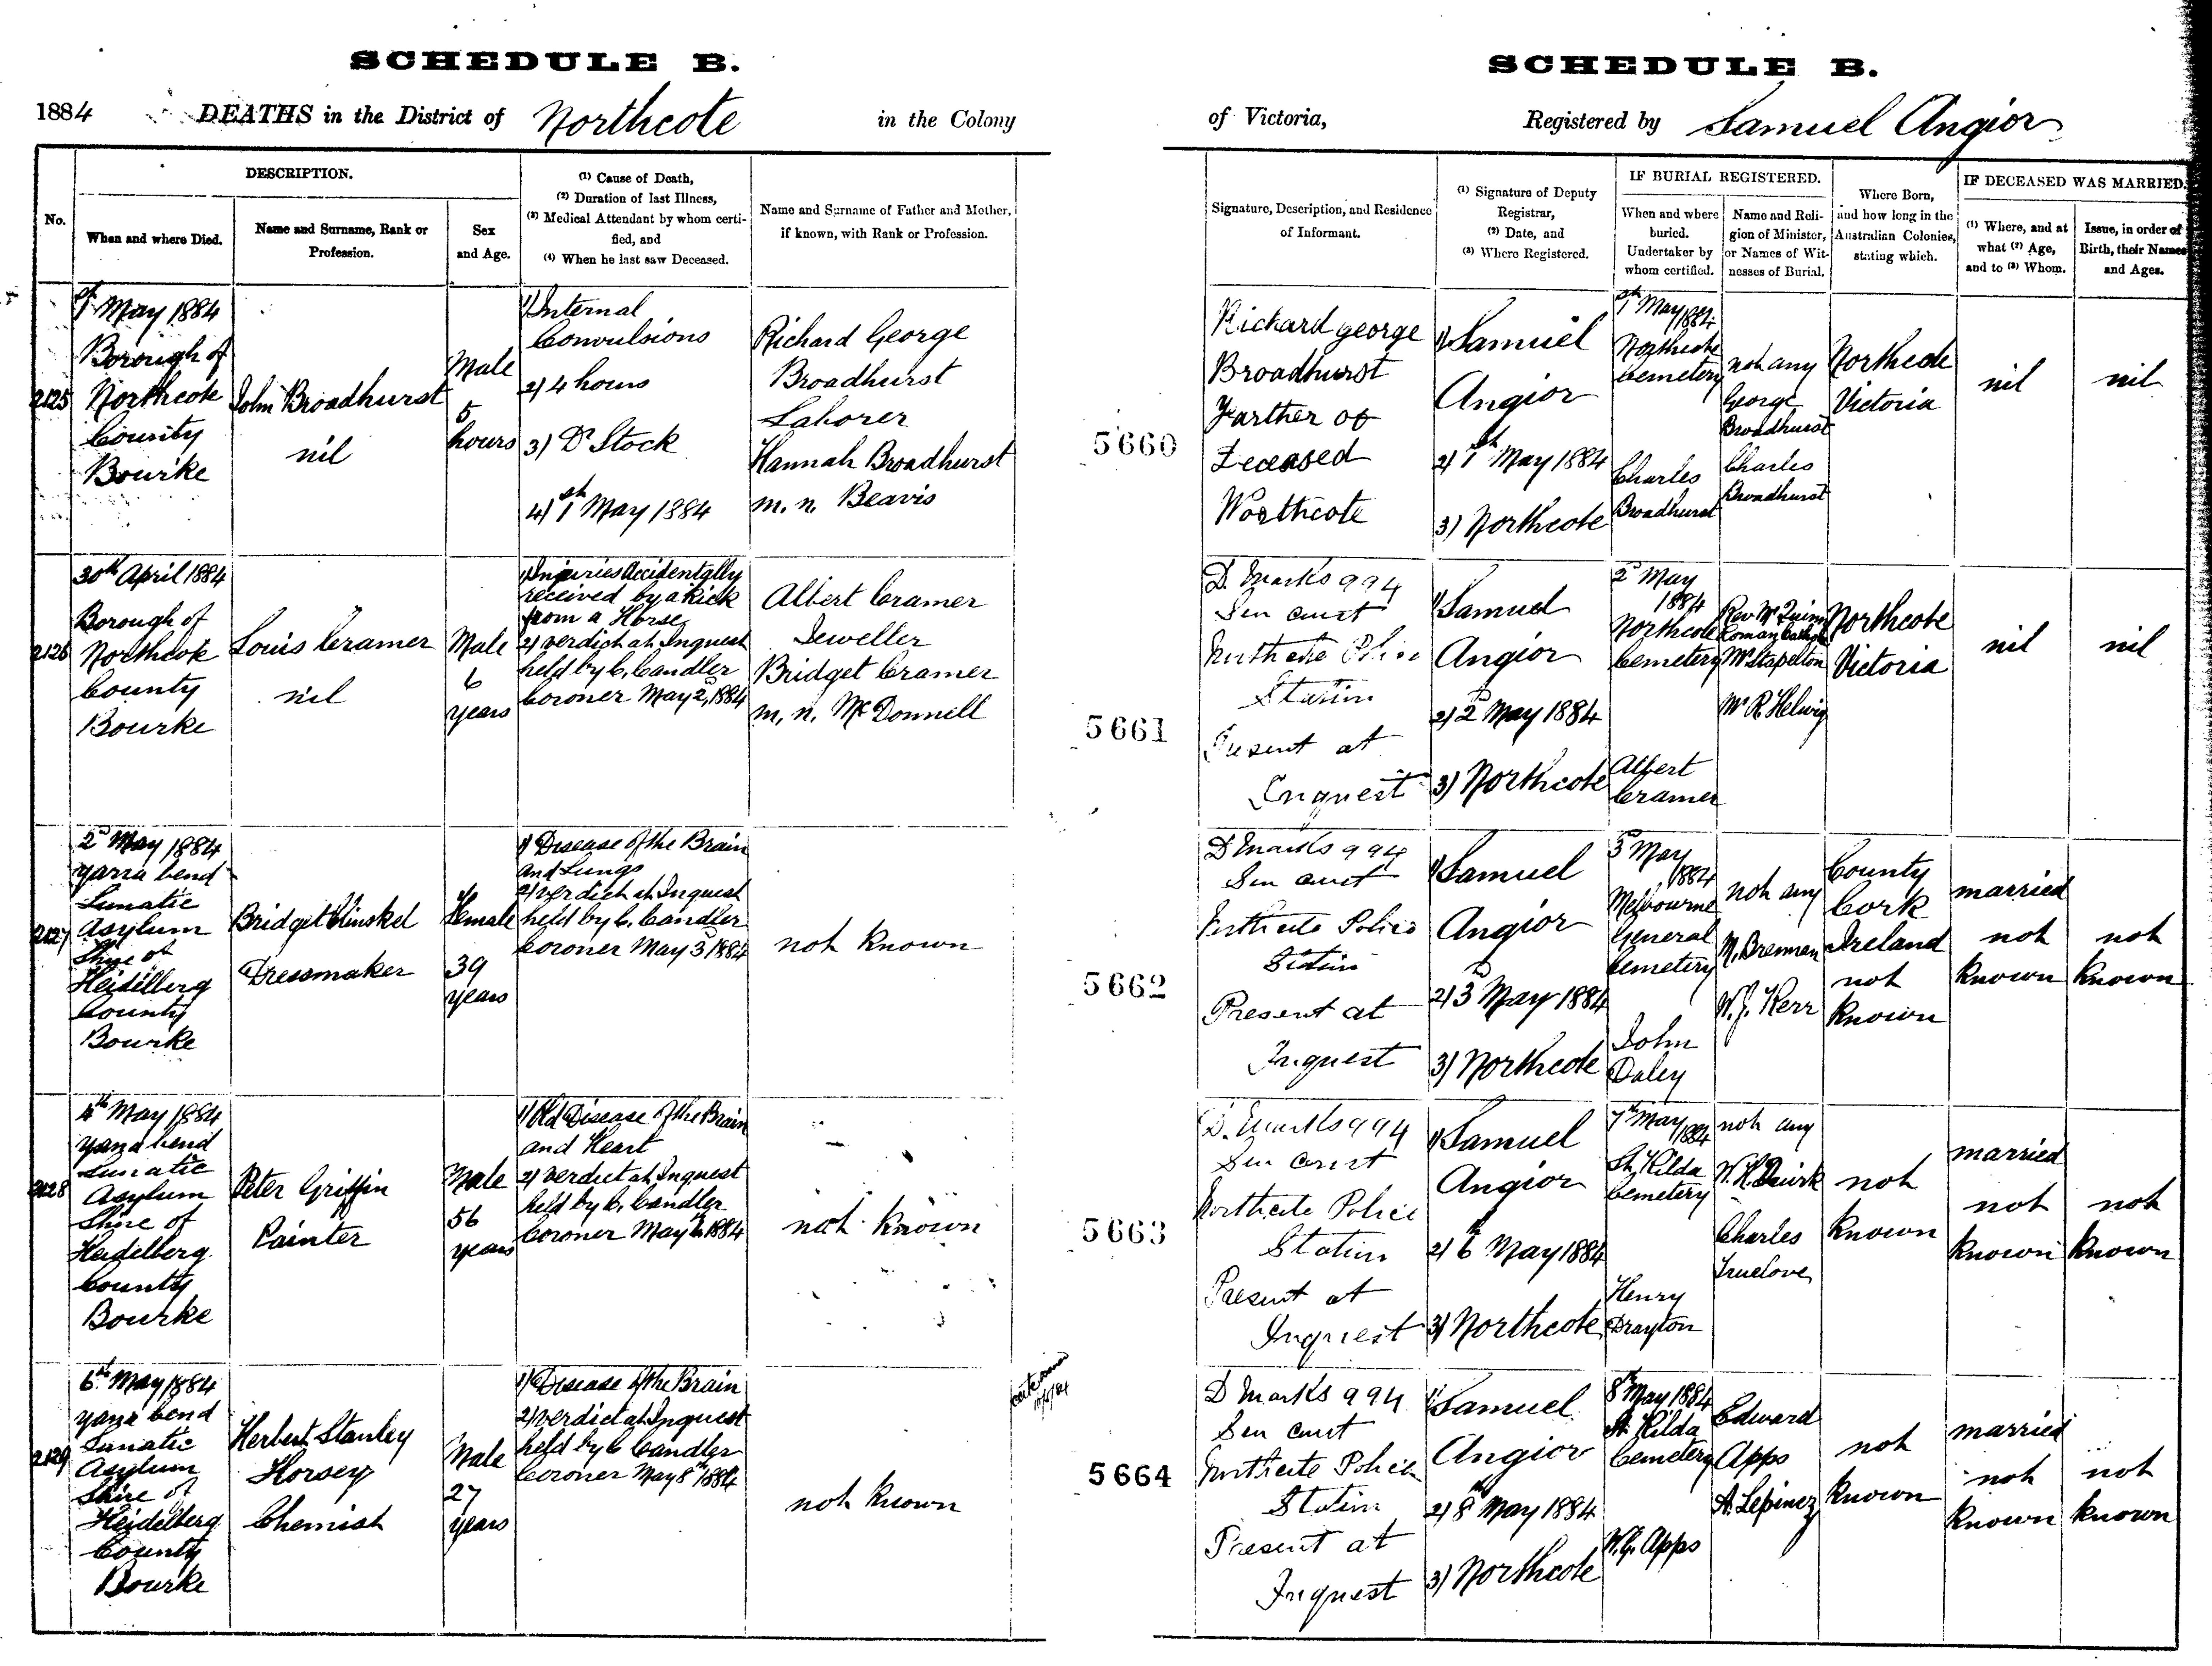 SCHEDULE B.
1884 DEATHS in the District of Northcote in the Colony
No.
DESCRIPTION.
When and where Died.
Name and Surname, Rank or
Profession.
Sex
and Age.
(1) Cause of Death,
(2) Duration of last Illness,
(3) Medical Attendant by whom certi-
fied, and
(4) When he last saw Deceased.
Name and Surname of Father and Mother,
if known, with Rank or Profession.
2125
1st May 1884
Borough of
Northcote
County
Bourke
John Broadhurst
nil
Male
5
hours
1) Internal
Convulsions
2) 4 hours
3) Dr Stock
4) 1st May 1884
Richard George
Broadhurst
Laborer
Hannah Broadhurst
m. n. Beavis
2126
30th April 1884
Borough of
Northcote
County
Bourke
Louis Cramer
nil
Male
6
years
1) Injuries Accidentally
received by a kick
from a Horse
2) verdict at Inquest
held by C. Candler
Coroner May 2d, 1884
Albert Cramer
Jeweller
Bridget Cramer
m. n. McDonnell
2127
2d May 1884
Yarra bend
Lunatic
Asylum
Shire of
Heidelberg
County
Bourke
Bridget
Dressmaker
Female
39
years
1) Disease of the Brain
and Lungs
2) verdict at Inquest
held by C. Candler
Coroner May 3d 1884
not known
2128
4th May 1884
Yarra bend
Lunatic
Asylum
Shire of
Heidelberg
County
Bourke
Peter Griffin
Painter
Male
56
years
1) Old Disease of the Brain
and Heart
2) verdict at Inquest
held by C. Candler
Coroner May 6th 1884
not known
2129
6th May 1884
Yarra bend
Lunatic
Asylum
Shire of
Heidelberg
County
Bourke
Herbert Stanley
Horsey
Chemist
Male
27
years
1) Disease of the Brain
2) verdict at Inquest
held by C Candler
Coroner May 8th 1884
not known
SCHEDULE B.
of Victoria, Registered by Samuel Angior
Signature, Description, and Residence
of Informant.
(1) Signature of Deputy
Registrar,
(2) Date, and
(3) Where Registered.
IF BURIAL REGISTERED.
When and where
buried.
Undertaker by
whom certified.
Name and Reli-
gion of Minister,
or Names of Wit-
nesses of Burial.
Where Born,
and how long in the
Australian Colonies,
stating which.
IF DECEASED WAS MARRIED.
(1) Where, and at
what (2) Age,
and to (3) Whom.
Issue, in order of
Birth, their Names
and Ages.
5660
Richard george
Broadhurst
Farther of
Deceased
Northcote
1) Samuel
Angior
2) 1st May 1884
3) Northcote
1st May 1884
Northcote
Cemetery
Charles
Broadhurst
not any
George
Broadhurst
Charles
Broadhurst
Northcote
Victoria
nil
nil
5661
D Marks 994
Sen const
Northcote Police
Station
Present at
Inquest
1) Samuel
Angior
2) 2d May 1884
3) Northcote
2d May
1884
Northcote
Cemetery
Albert
Cramer
Rev Mr Quinn
Roman Catholic
Mr Stapelton
Mr R. Helwig
Northcote
Victoria
nil
nil
5662
D Marks 994
Sen const
Northcote Police
Station
Present at
Inquest
1) Samuel
Angior
2) 3d May 1884
3) Northcote
3d May
1884
Melbourne
General
Cemetery
John
Daley
not any
M. Brennan
W. J. Kerr
County
Cork
Ireland
not
known
married
not
known
not
known
5663
D. Marks 994
Sen const
Northcote Police
Station
Present at
Inquest
1) Samuel
Angior
2) 6th May 1884
3) Northcote
7th May 1884
St Kilda
Cemetery
Henry
Drayton
not any
W. H. Quirk
Charles
Truelove
not
known
married
not
known
not
known
5664
D Marks 994
Sen const
Northcote Police
Station
Present at
Inquest
1) Samuel
Angior
2) 8th May 1884
3) Northcote
8th May 1884
St Kilda
Cemetery
W. G. Apps
Edward
Apps
A. Lepinez
not
known
married
not
known
not
known